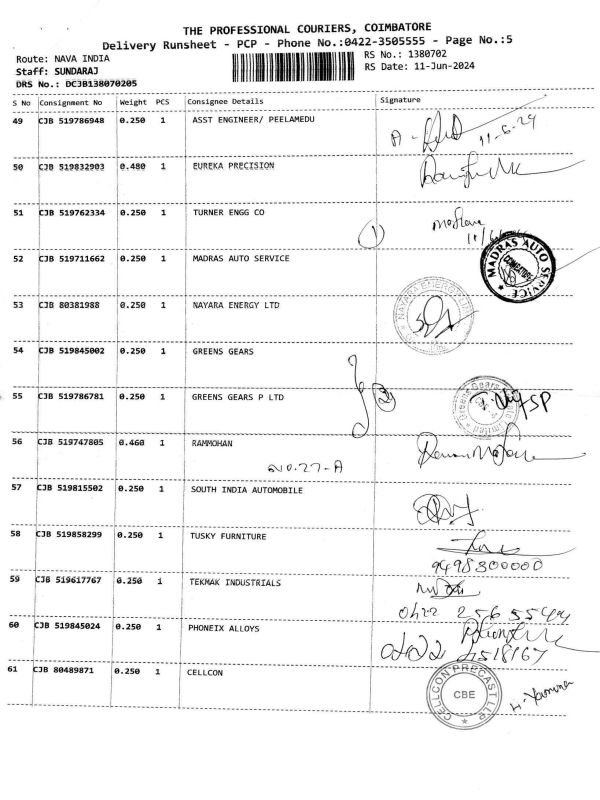 THE PROFESSIONAL COURIERS, COIMBATORE
Delivery Runsheet - PCP - Phone No.:0422-3505555 - Page No.:5
Route: NAVA INDIA
RS No.: 1380702
Staff: SUNDARAJ
RS Date: 11-Jun-2024
DRS No.: DCJB138070205
S No Consignment No Weight PCS Consignee Details Signature
49 CJB 519786948 0.250 1 ASST ENGINEER/ PEELAMEDU
11-6-24
50 CJB 519832903 0.480 1 EUREKA PRECISION
51 CJB 519762334 0.250 1 TURNER ENGG CO
1
52 CJB 519711662 0.250 1 MADRAS AUTO SERVICE
MADRAS AUTO SERVICE
COIMBATORE
53 CJB 80381988 0.250 1 NAYARA ENERGY LTD
NAYARA ENERGY
54 CJB 519845002 0.250 1 GREENS GEARS
55 CJB 519786781 0.250 1 GREENS GEARS P LTD
2
56 CJB 519747805 0.460 1 RAMMOHAN
NO.27-A
57 CJB 519815502 0.250 1 SOUTH INDIA AUTOMOBILE
58 CJB 519858299 0.250 1 TUSKY FURNITURE
9498300000
59 CJB 519617767 0.250 1 TEKMAK INDUSTRIALS
0422 2565544
60 CJB 519845024 0.250 1 PHONEIX ALLOYS
61 CJB 80489871 0.250 1 CELLCON
CELLCON PRECAST LLP
CBE